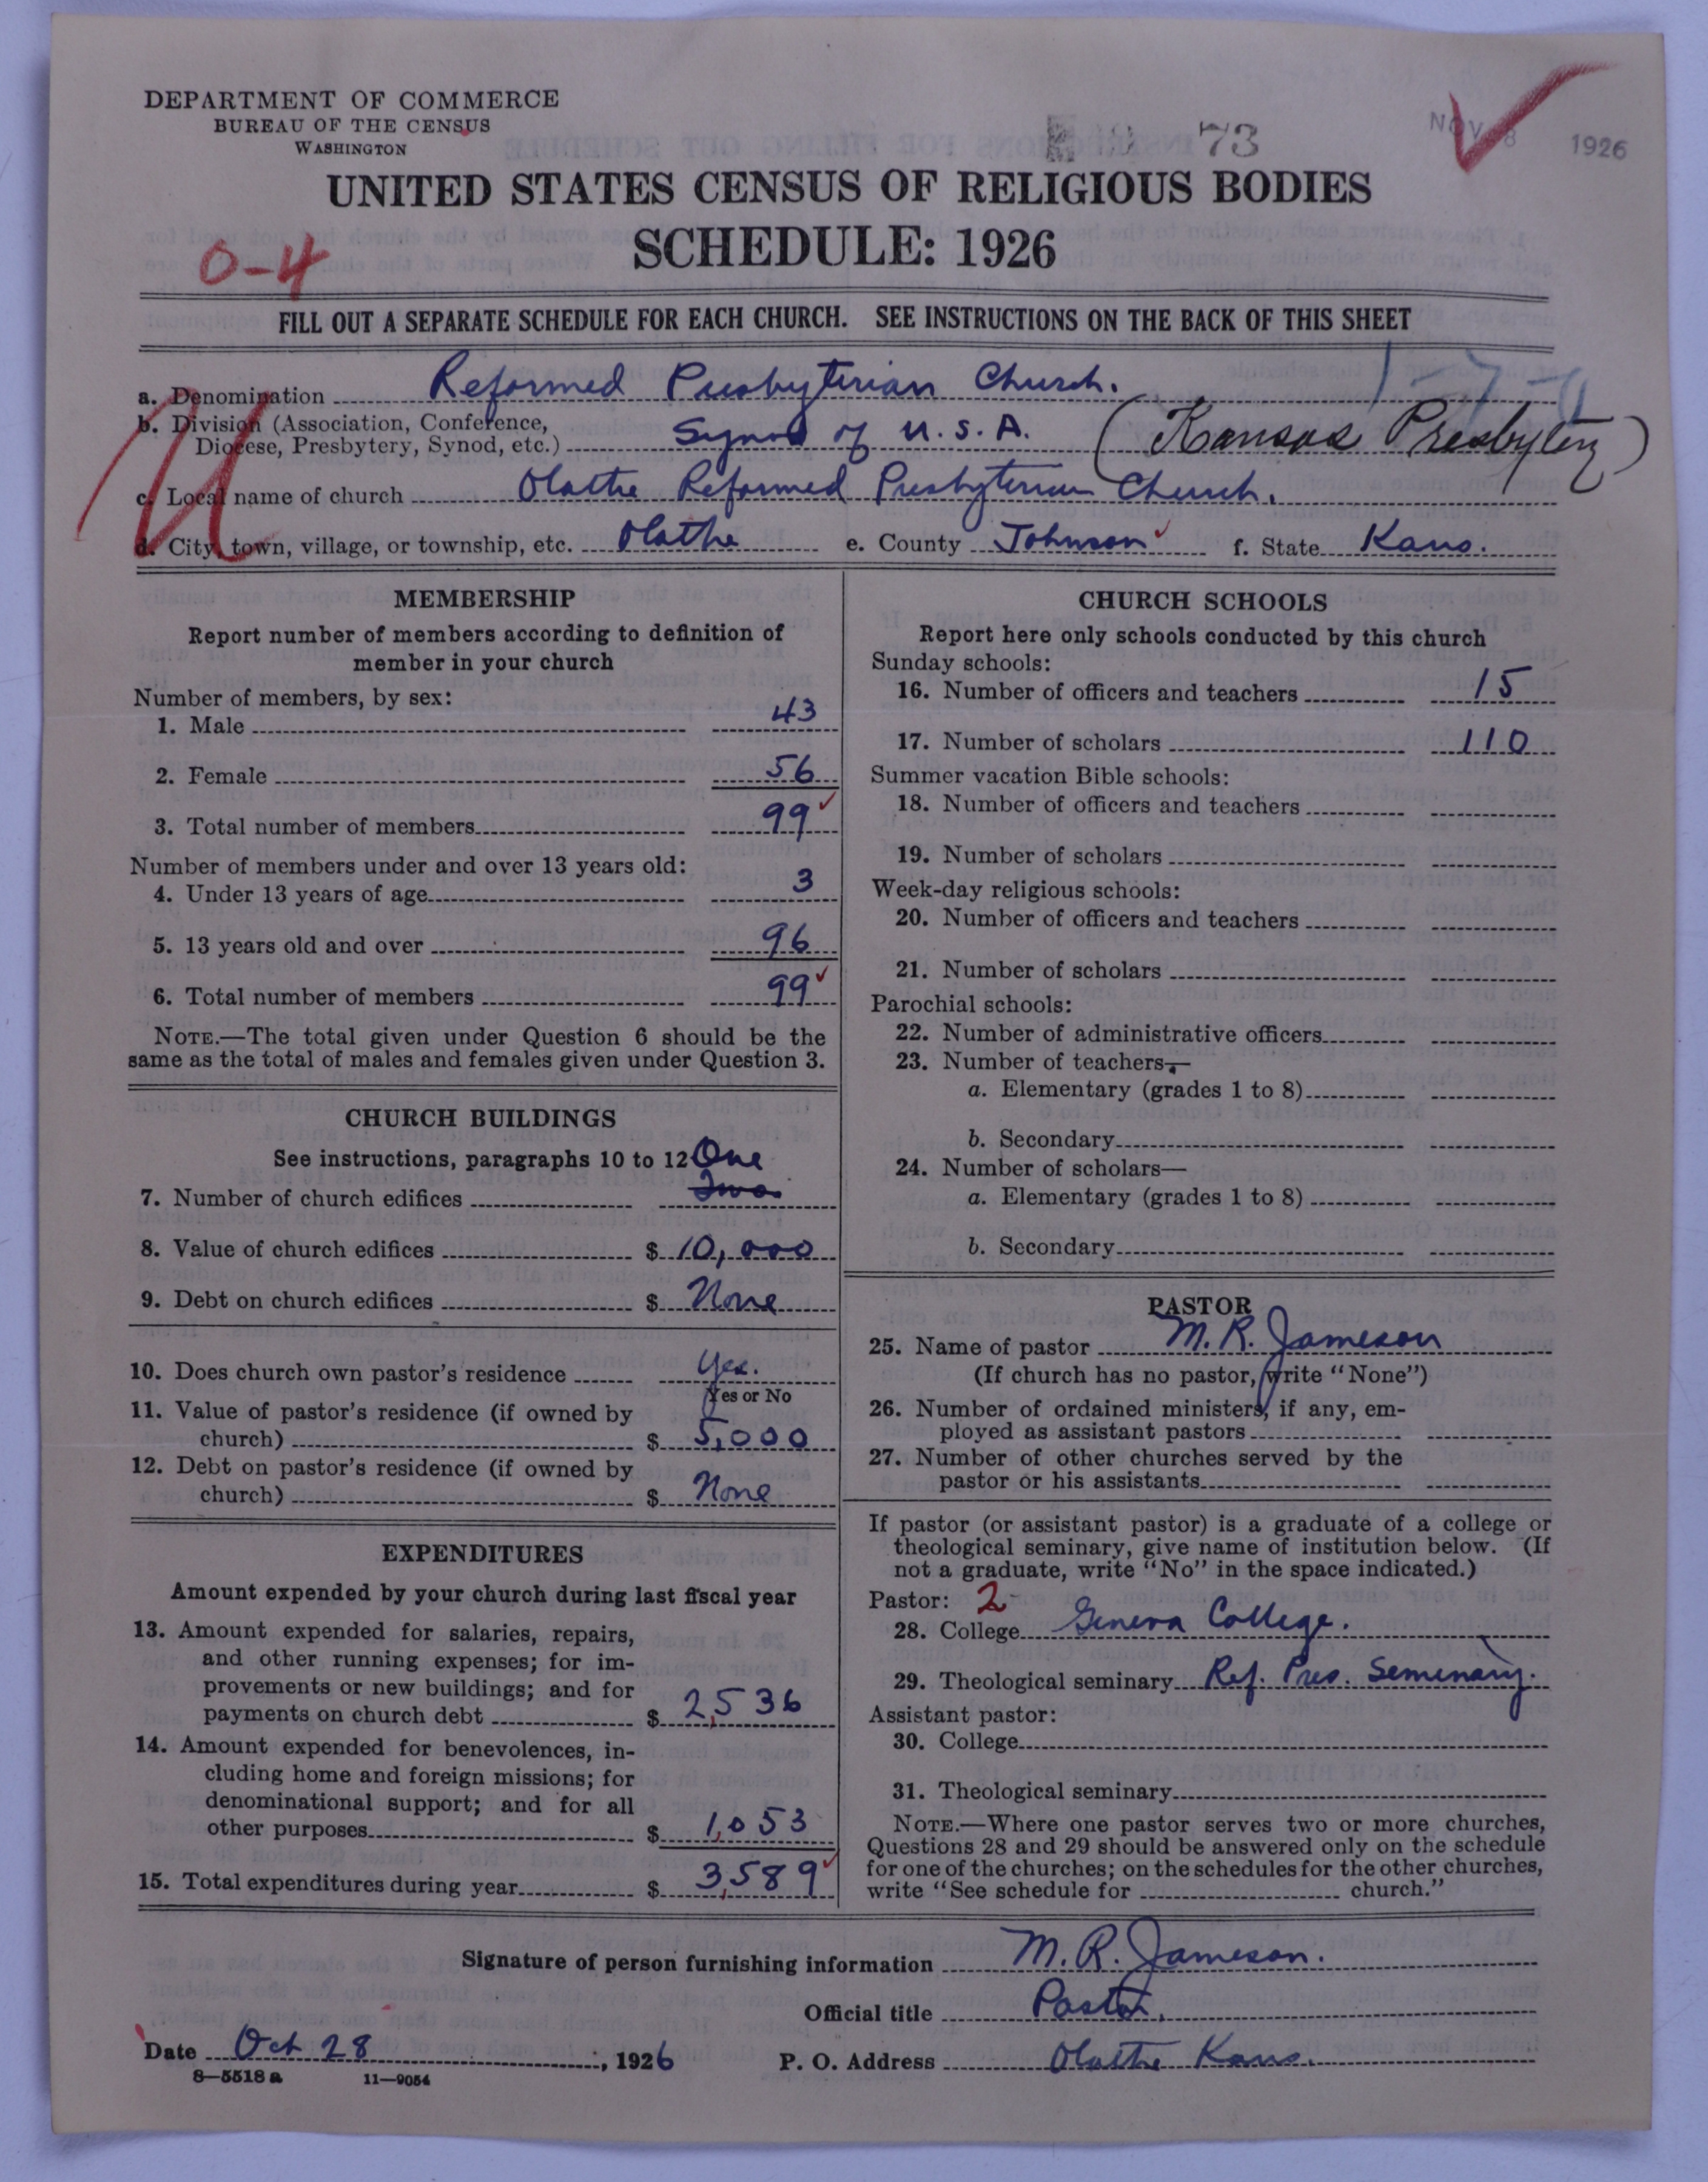 DEPARTMENT OF COMMERCE
BUREAU OF THE CENSUS
WASHINGTON
73
NOV 8 1926
UNITED STATES CENSUS OF RELIGIOUS BODIES
SCHEDULE: 1926
0-4
FILL OUT A SEPARATE SCHEDULE FOR EACH CHURCH. SEE INSTRUCTIONS ON THE BACK OF THIS SHEET
1-7-0
a. Denomination Reformed Presbyterian Church.
b. Division (Association, Conference,
Diocese, Presbytery, Synod, etc.) Synod of U.S.A. (Kansas Presbytery)
c. Local name of church Olathe Reformed Presbyterian Church.
d. City, town, village, or township, etc. Olathe e. County Johnson f. State Kans.
MEMBERSHIP
Report number of members according to definition of
member in your church
Number of members, by sex:
1. Male 43
2. Female 56
3. Total number of members 99
Number of members under and over 13 years old:
4. Under 13 years of age 3
5. 13 years old and over 96
6. Total number of members 99
NOTE.—The total given under Question 6 should be the
same as the total of males and females given under Question 3.
CHURCH BUILDINGS
See instructions, paragraphs 10 to 12
One
7. Number of church edifices Two
8. Value of church edifices $ 10,000
9. Debt on church edifices $ None
10. Does church own pastor's residence Yes.
Yes or No
11. Value of pastor's residence (if owned by
church) $ 5,000
12. Debt on pastor's residence (if owned by
church) $ None
EXPENDITURES
Amount expended by your church during last fiscal year
13. Amount expended for salaries, repairs,
and other running expenses; for im-
provements or new buildings; and for
payments on church debt $ 2,536
14. Amount expended for benevolences, in-
cluding home and foreign missions; for
denominational support; and for all
other purposes $ 1,053
15. Total expenditures during year $ 3,589
CHURCH SCHOOLS
Report here only schools conducted by this church
Sunday schools:
16. Number of officers and teachers 15
17. Number of scholars 110
Summer vacation Bible schools:
18. Number of officers and teachers
19. Number of scholars
Week-day religious schools:
20. Number of officers and teachers
21. Number of scholars
Parochial schools:
22. Number of administrative officers
23. Number of teachers—
a. Elementary (grades 1 to 8)
b. Secondary
24. Number of scholars—
a. Elementary (grades 1 to 8)
b. Secondary
PASTOR
25. Name of pastor M. R. Jameson
(If church has no pastor, write "None")
26. Number of ordained ministers, if any, em-
ployed as assistant pastors
27. Number of other churches served by the
pastor or his assistants
If pastor (or assistant pastor) is a graduate of a college or
theological seminary, give name of institution below. (If
not a graduate, write "No" in the space indicated.)
Pastor: 2
28. College Geneva College.
29. Theological seminary Ref. Pres. Seminary.
Assistant pastor:
30. College
31. Theological seminary
NOTE.—Where one pastor serves two or more churches,
Questions 28 and 29 should be answered only on the schedule
for one of the churches; on the schedules for the other churches,
write "See schedule for church."
Signature of person furnishing information M. R. Jameson.
Official title Pastor.
Date Oct 28, 1926 P. O. Address Olathe Kans.
8—5518 a 11—9054